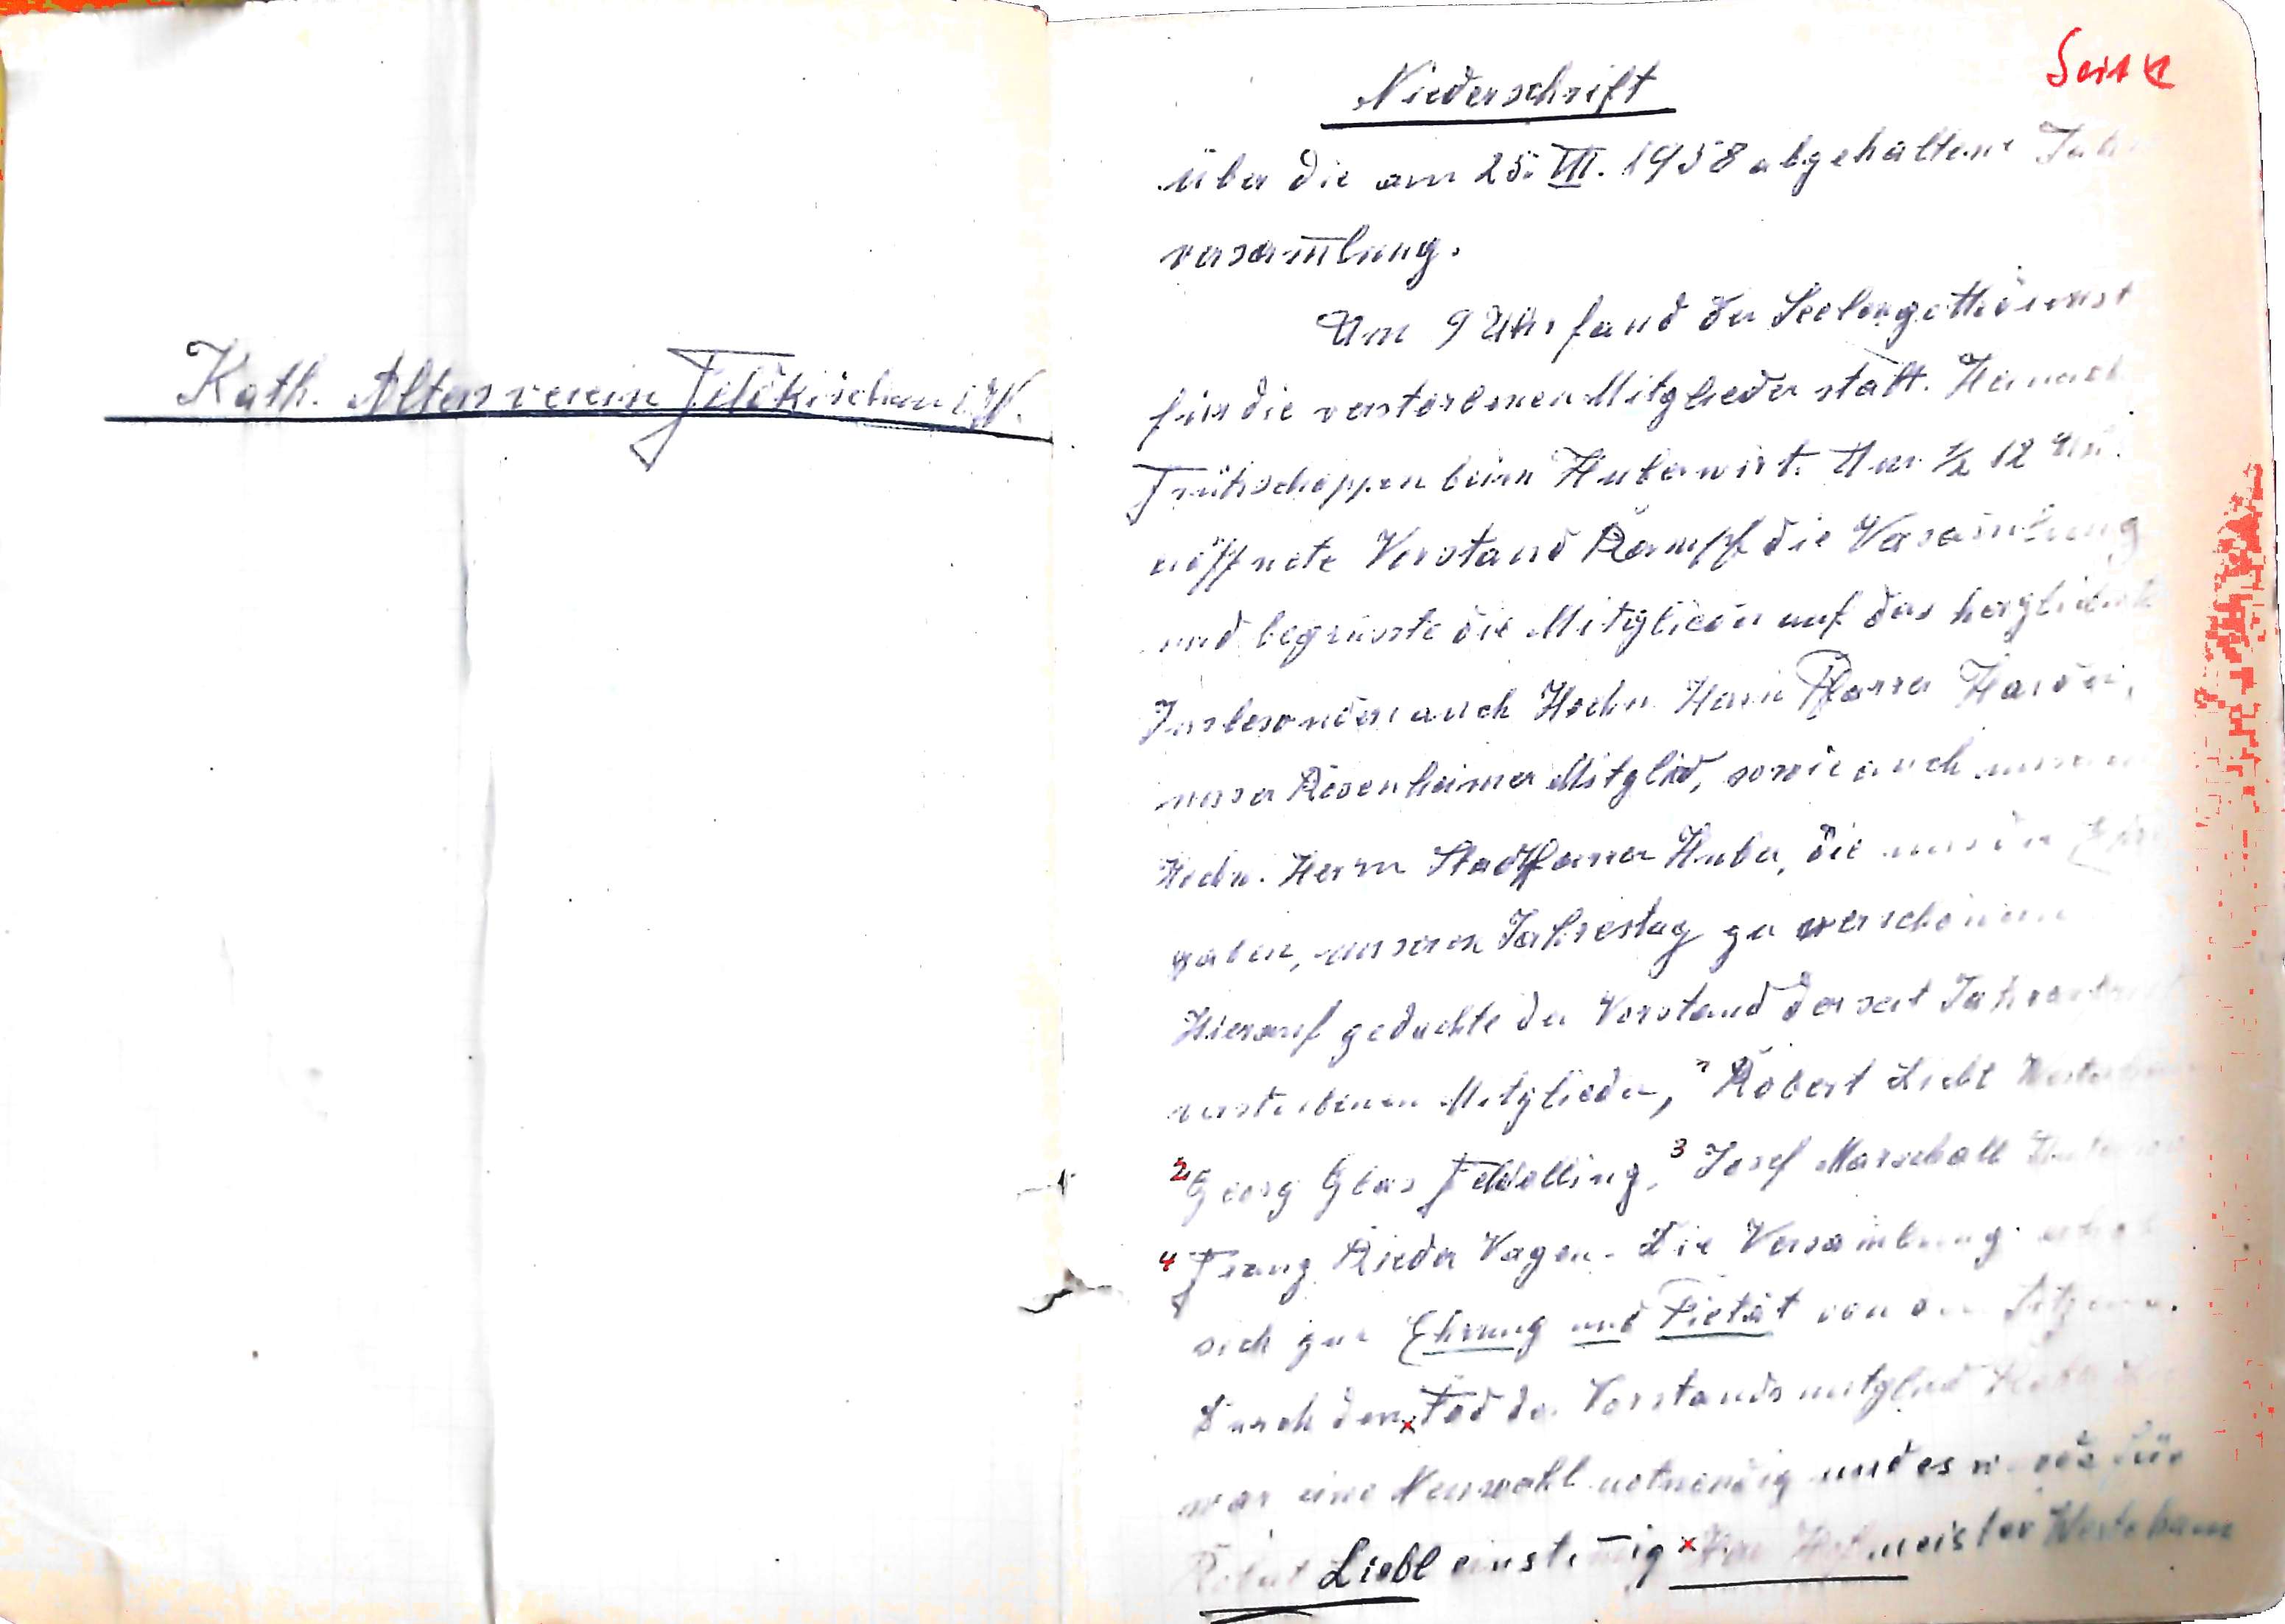 Kath. Altersverein Feldkirchen i. W.
Niederschrift
über die am 25. VII. 1958 abgehaltene
versam̅lung.
Um 9 Uhr fand der Seelengottsdienst
für die verstorbenen Mitglieder statt. Hernach
Frühschoppen beim Huberwirt. Um ½ 12 Uhr
eröffnete Vorstand Rampf die Versam̅lung
und begrüsste die Mitglieder auf das herzlichste
Insbesondere auch Hochw. Herrn Pfarrer
unser Rosenheimer Mitglied, sowie auch
Hochw. Herrn Stadtpfarrer Huber, die uns die
gaben, unseren Jahrestag zu verschönern
Hierauf gedachte der Vorstand der seit
verstorbenen Mitglieder, Robert Liebl
2 Georg Glas Feldolling, 3 Josef Marschall
4 Franz Rieder Vagen. Die Versam̅lung erhob
sich zur Ehrung und Pietät von den Sitzen.
Durch den x Tod des Vorstandsmitglied
war eine Neuwahl notwendig und es wurde für
Robert Liebl einstim̅ig x Hofmeister Westerham